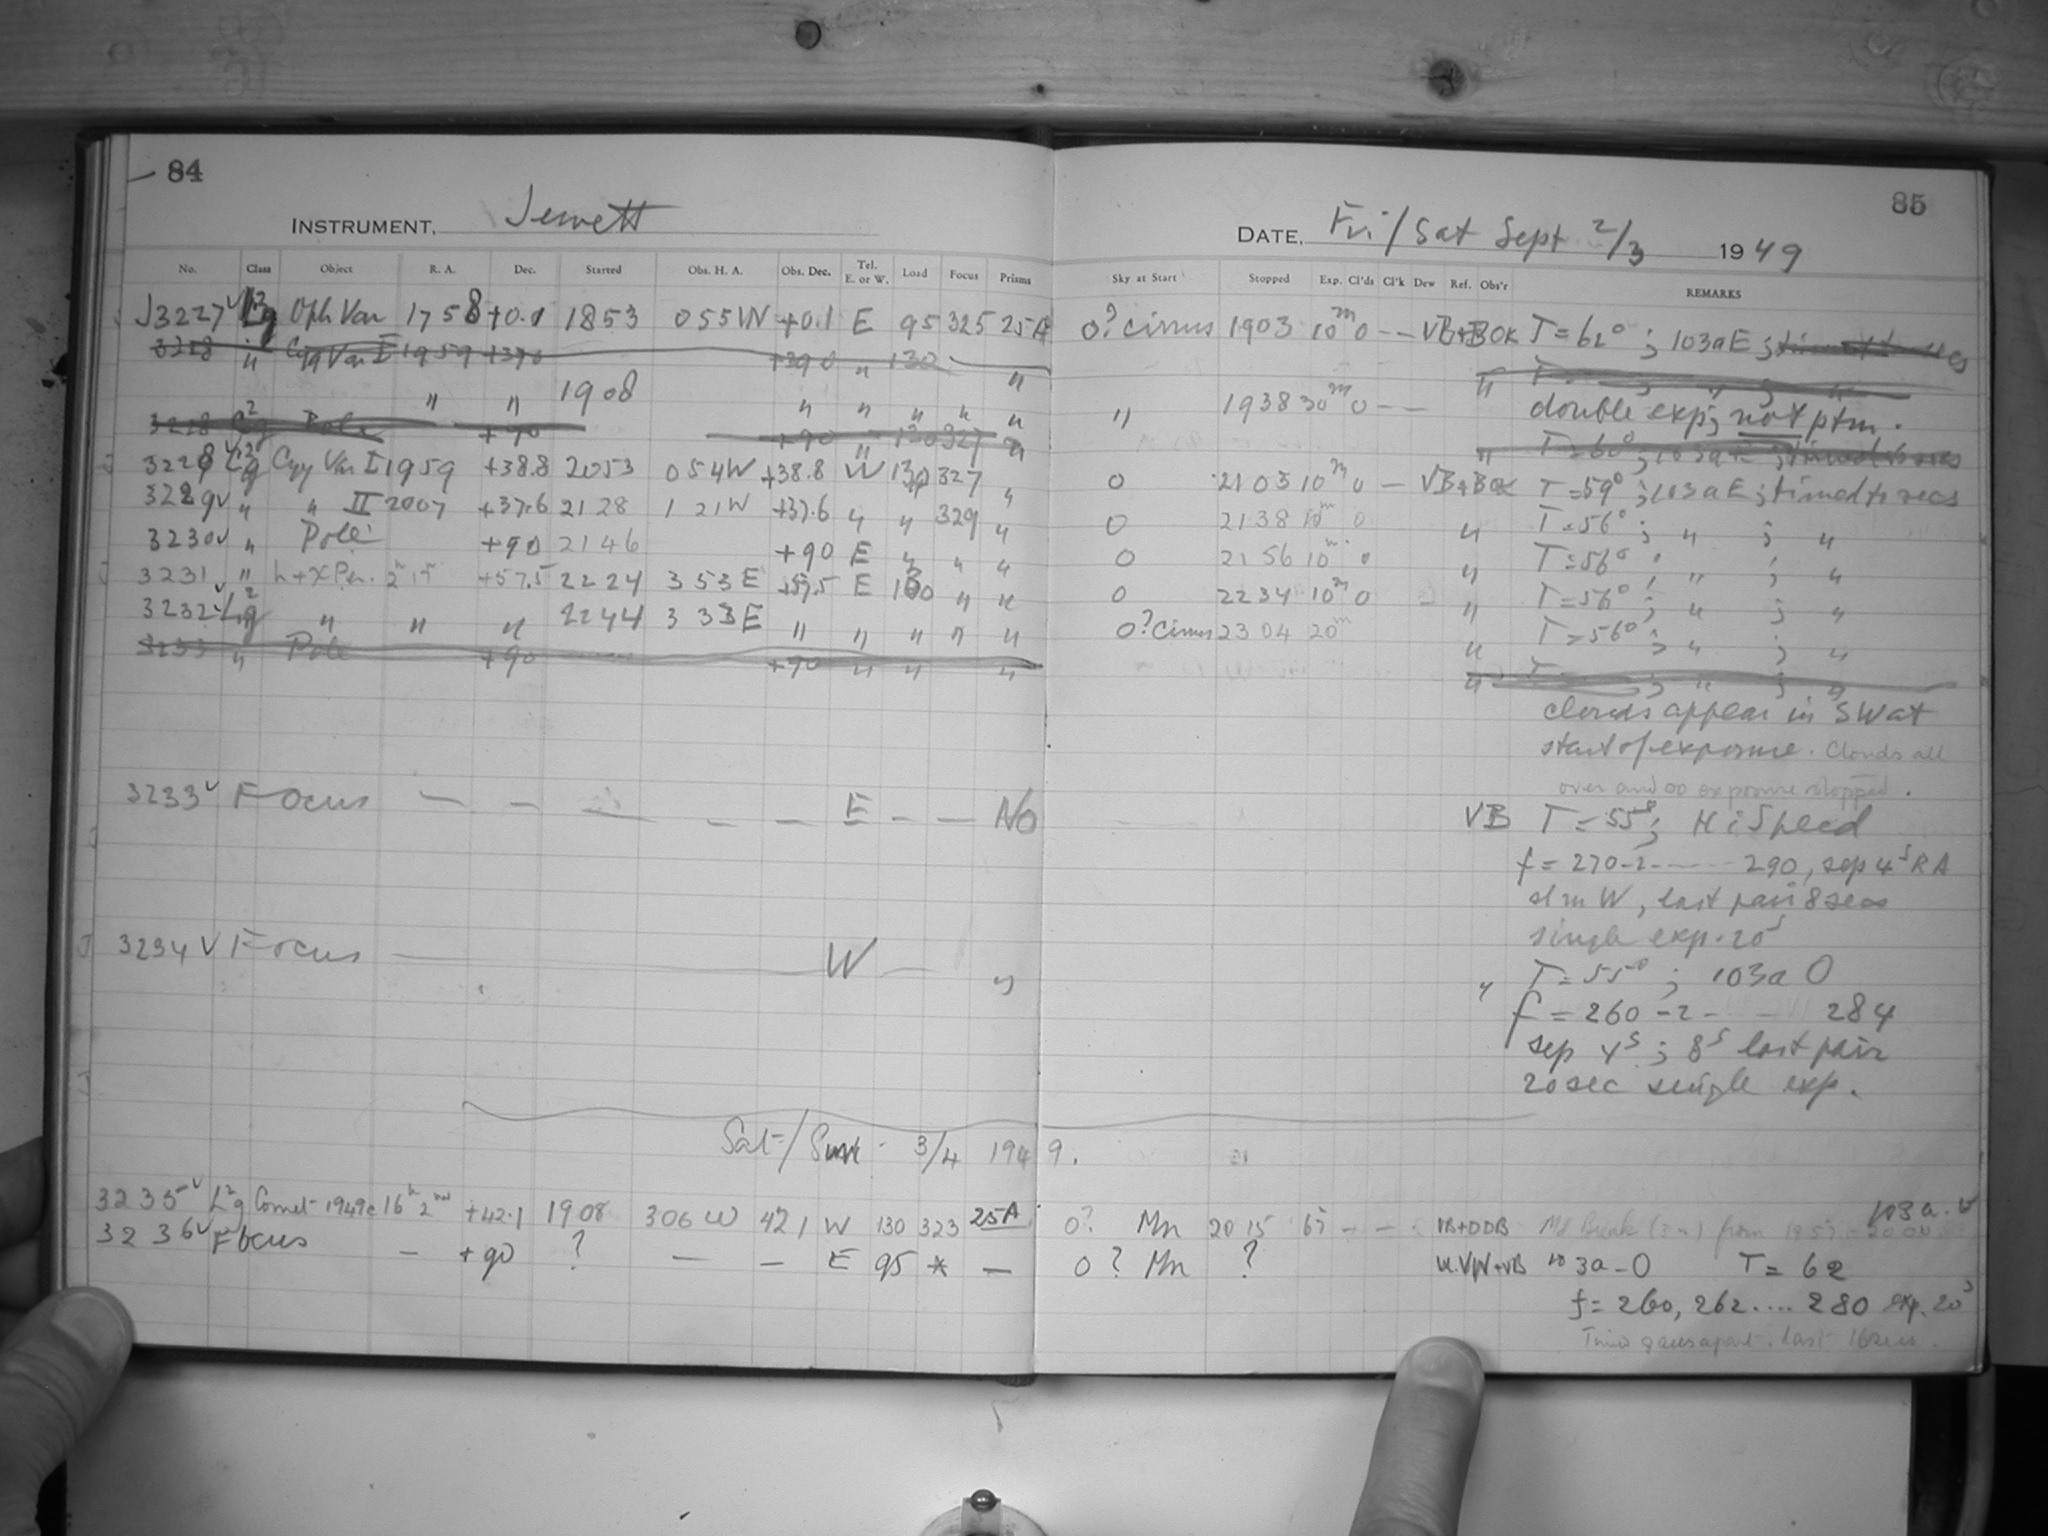 84
85
INSTRUMENT, Jewett
DATE, Fri/Sat Sept 2/3 1949
No. Class Object R. A. Dec. Started Obs. H. A. Obs. Dec. Tel. E. or W. Load Focus Prisms Sky at Start Stopped Exp. Cl'ds Cl'k Dew Ref. Obs'r REMARKS
J3227 Oph Var 1758 +0.1 1853 055W +0.1 E 95 325 25A 0? cirrus 1903 10m 0 - - VB+BOK T=62° ; 103aE ;
3228 " Cyg Var I 1959 +39.0 +39.0 " 130 "
" " 1908 " " " " " " 1938 30m 0 - - double exp; not ptm.
3228 Pole +90 +90 " 130 327 " " T=60° ; 103aE ; timed to secs
3228 L2g Cyg Var I 1959 +38.8 2053 054W +38.8 W 130 327 " 0 2103 10m 0 - VB+BOK T=59° ; 103aE ; timed to secs
3229 " " II 2007 +37.6 2128 1 21W +37.6 " " 329 " 0 2138 10m 0 " T=56° ; " ; "
3230 " Pole +90 2146 +90 E " " " 0 2156 10m 0 " T=56° ; " ; "
3231 " h+χ Per. +57.5 2224 3 53E +57.5 E 100 " " 0 2234 10m 0 " T=56° ; " ; "
3232 L2g " " " 2244 3 33E " " " " " 0? Cirrus 2304 20m " T=56° ; " ; "
3233 " Pole +90 +90 " " " " T ; " ; "
clouds appear in SW at
start of exposure. Clouds all
over and so exposure stopped.
3233 Focus - - - - - E - - No VB T=55° ; Hi Speed
f=270-2------290, sep 4s RA
slm W, last pair 8 secs
single exp. 20s
3234 Focus W - " " T=55° ; 103a O
f=260-2------284
sep 4s ; 8s last pair
20 sec single exp.
Sat/Sun 3/4 1949.
3235 L2g Comet 1949c 16h 2m +42.1 1908 306W 421 W 130 323 25A 0? Mn 2015 67 - - from 1957-2000 103a.
3236 Focus - +90 ? - - E 95 * - 0? Mn ? 103a-O T=62
f=260, 262....280 exp. 20s
apart. Last 16 secs.